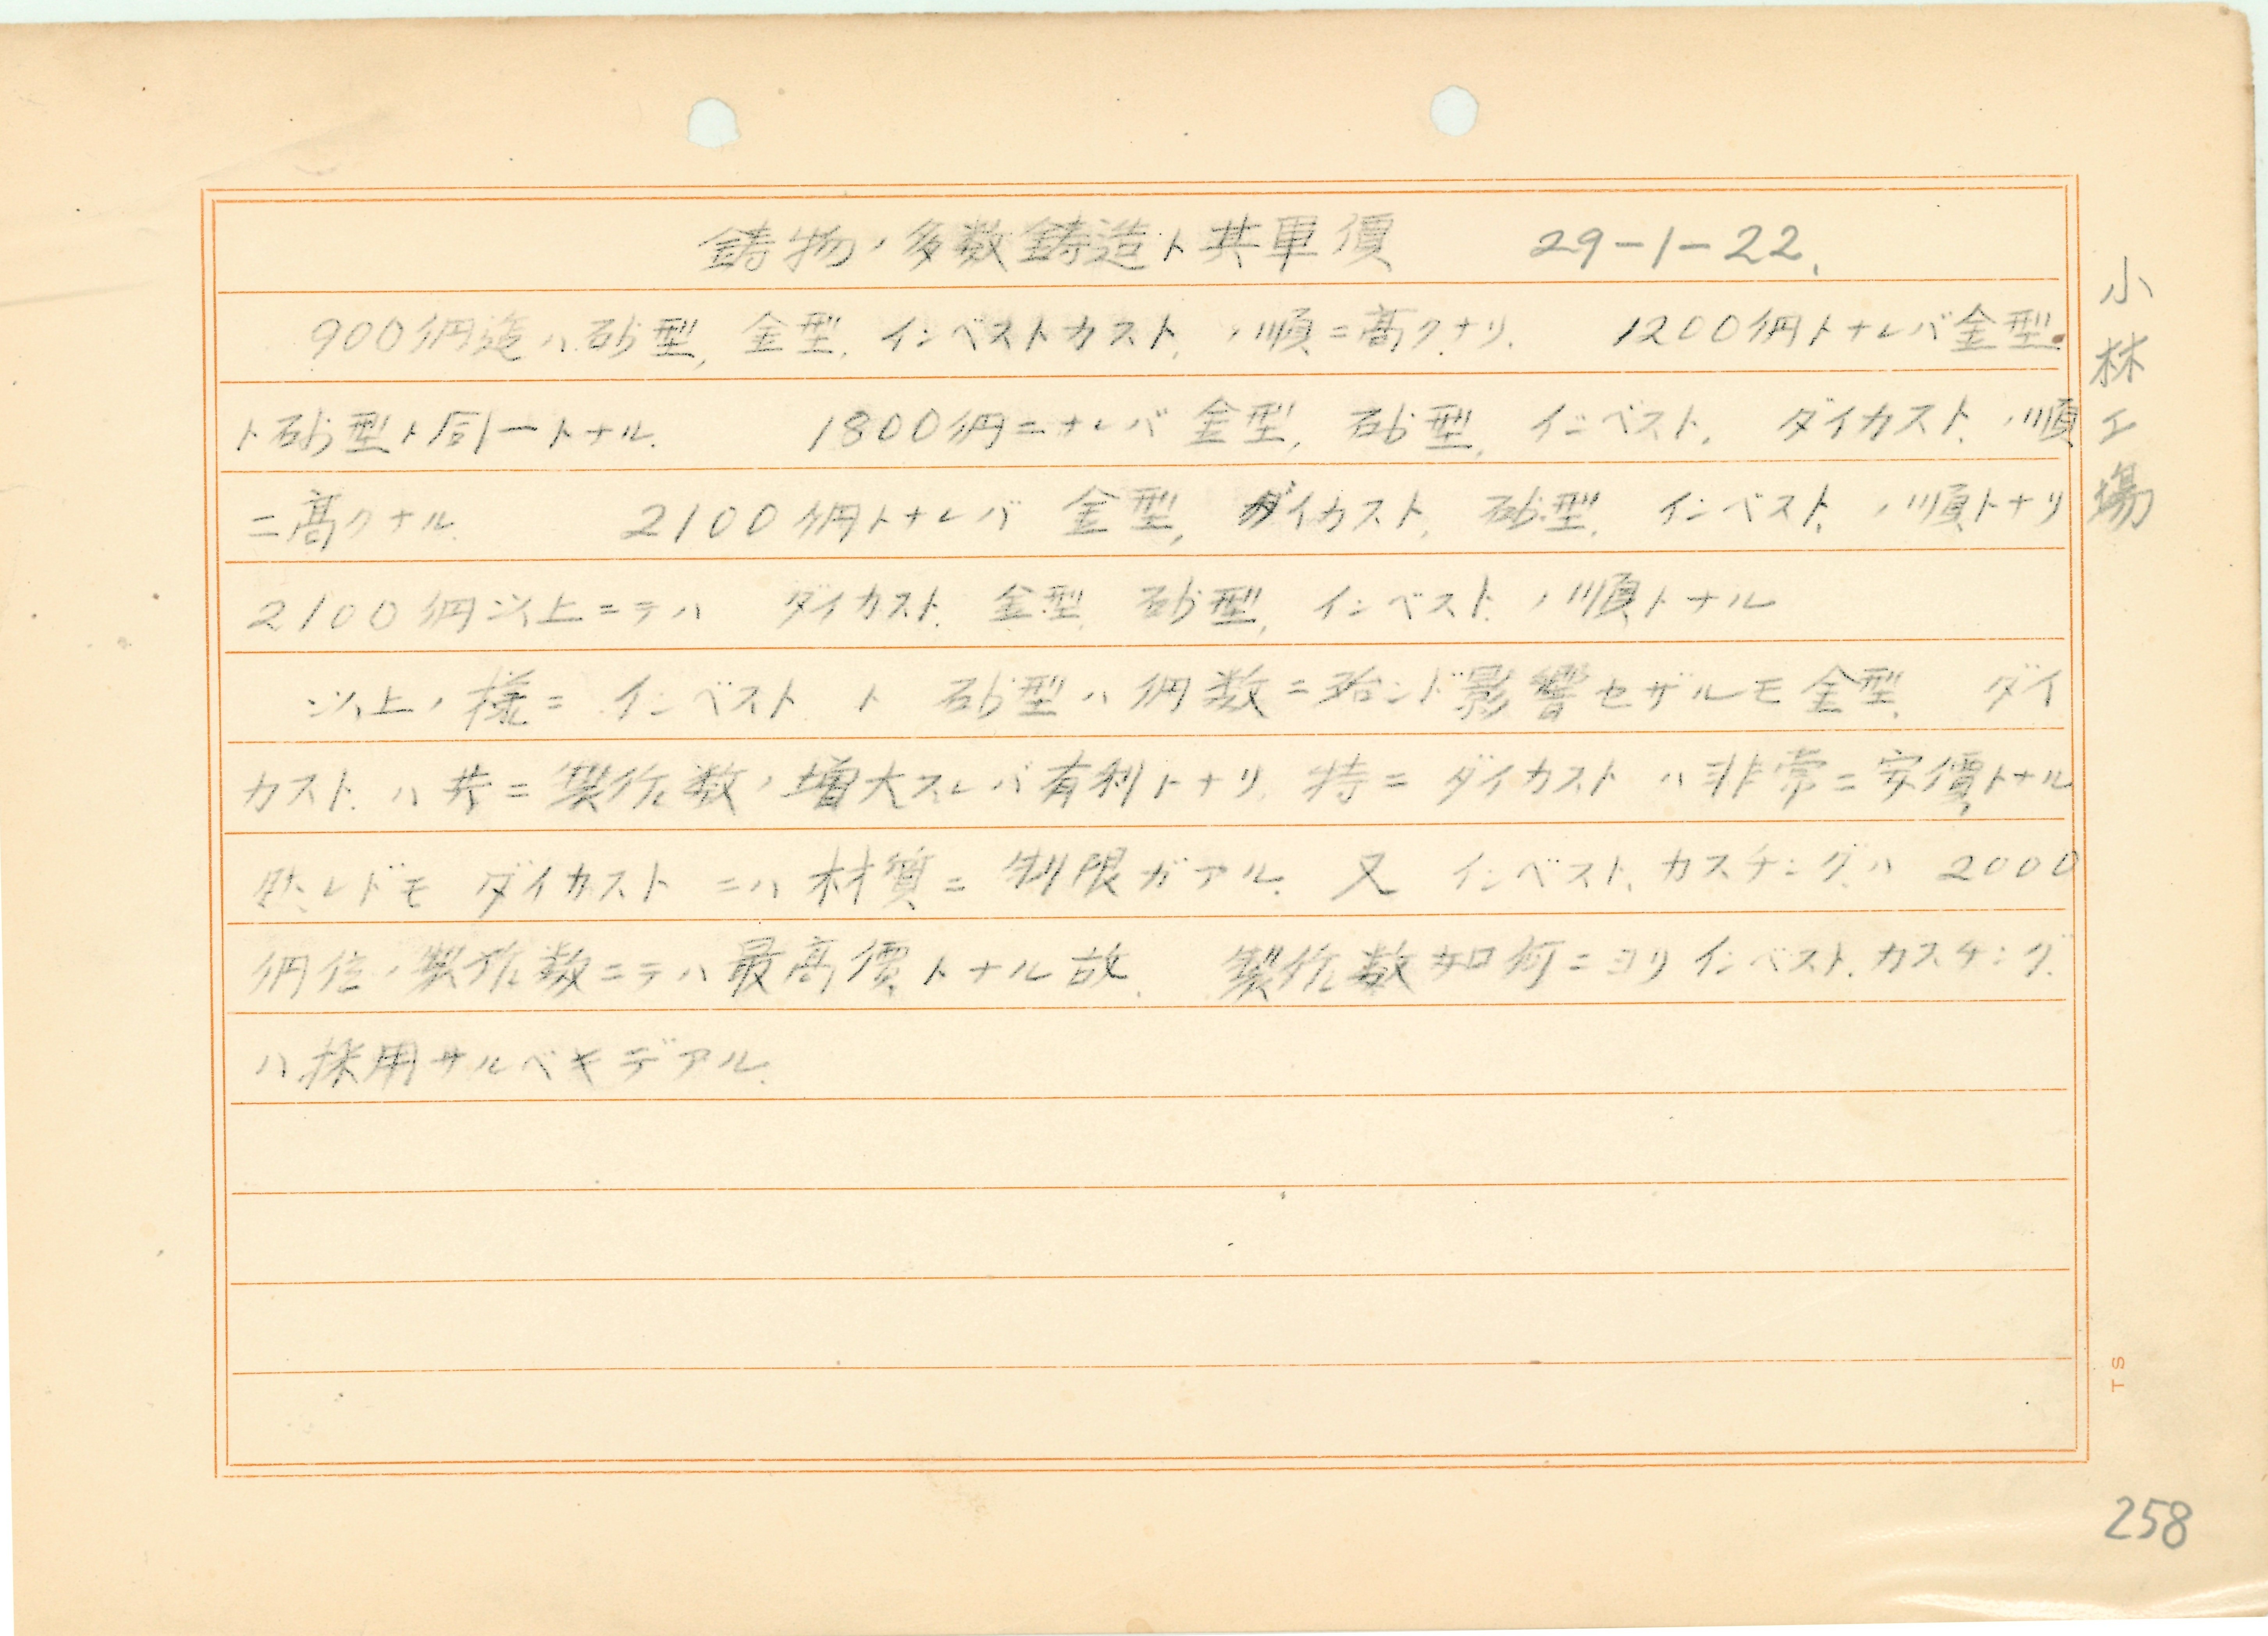 鋳物ノ多数鋳造ト其単價 29-1-22.
900個迄ハ砂型, 金型, インベストカスト, ノ順ニ高クナリ. 1200個トナレバ金型.
ト砂型ト同一トナル. 1800個ニナレバ 金型, 砂型, インベスト, ダイカスト, ノ順
ニ高クナル. 2100個トナレバ 金型, ダイカスト, 砂型, インベスト, ノ順トナリ
2100個以上ニテハ ダイカスト, 金型, 砂型, インベスト, ノ順トナル
以上ノ様ニ インベスト ト 砂型ハ個数ニ殆ンド影響セザルモ金型, ダイ
カスト, ハ共ニ製作数ノ増大スレバ有利トナリ. 特ニ ダイカスト ハ非常ニ安價トナル
然レドモ ダイカスト ニハ材質ニ制限ガアル. 又 インベスト.カスチングハ 2000
個位ノ製作数ニテハ最高價トナル故. 製作数如何ニヨリインベスト.カスチング.
ハ採用サルベキデアル.
小林工場
TS
258